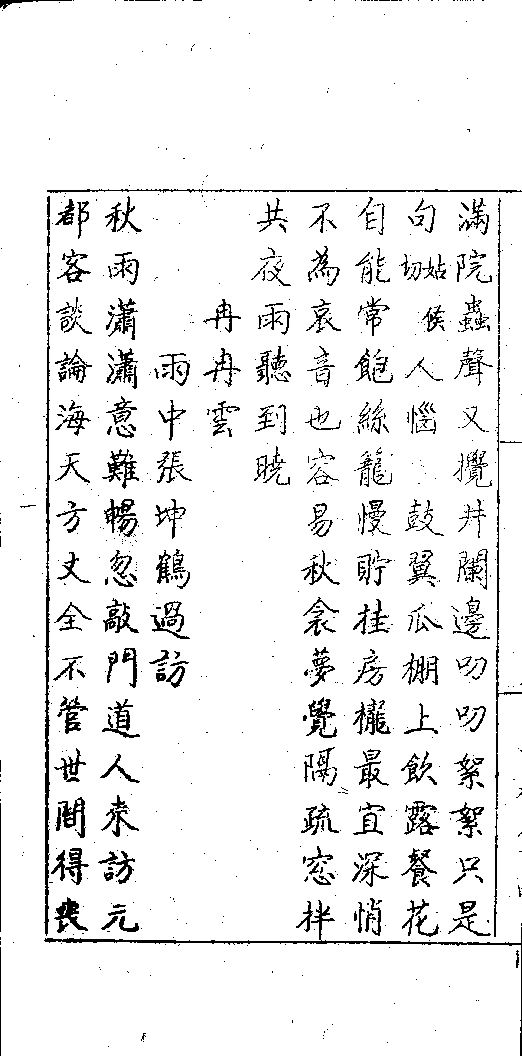 滿院蟲聲又攪井闌邊叨叨絮絮只是
句姑候切人惱　鼓翼瓜棚上飲露餐花
自能常飽絲籠慢貯挂房櫳最宜深悄
不為哀音也容易秋衾夢覺隔疏窓拌
共夜雨聽到曉
冉冉雲
雨中張坤鶴過訪
秋雨瀟瀟意難暢忽敲門道人來訪元
都客談論海天方丈全不管世間得喪